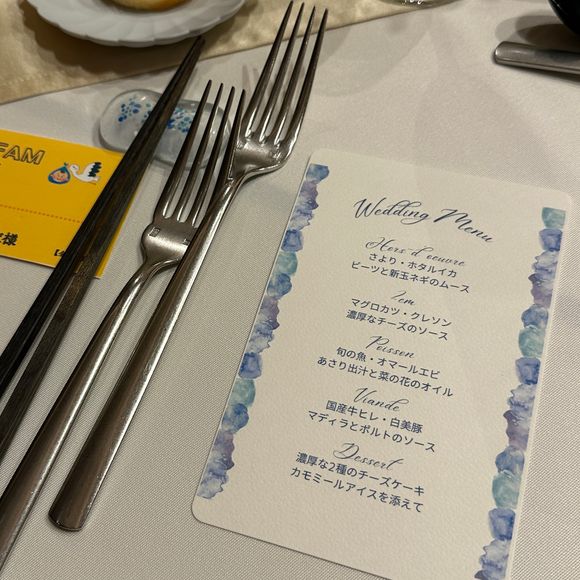 FAM
様
Wedding Menu
Hors d'oeuvre
さより・ホタルイカ
ビーツと新玉ネギのムース
マグロカツ・クレソン
濃厚なチーズのソース
Poisson
旬の魚・オマールエビ
あさり出汁と菜の花のオイル
Viande
国産牛ヒレ・白美豚
マディラとポルトのソース
Dessert
濃厚な2種のチーズケーキ
カモミールアイスを添えて